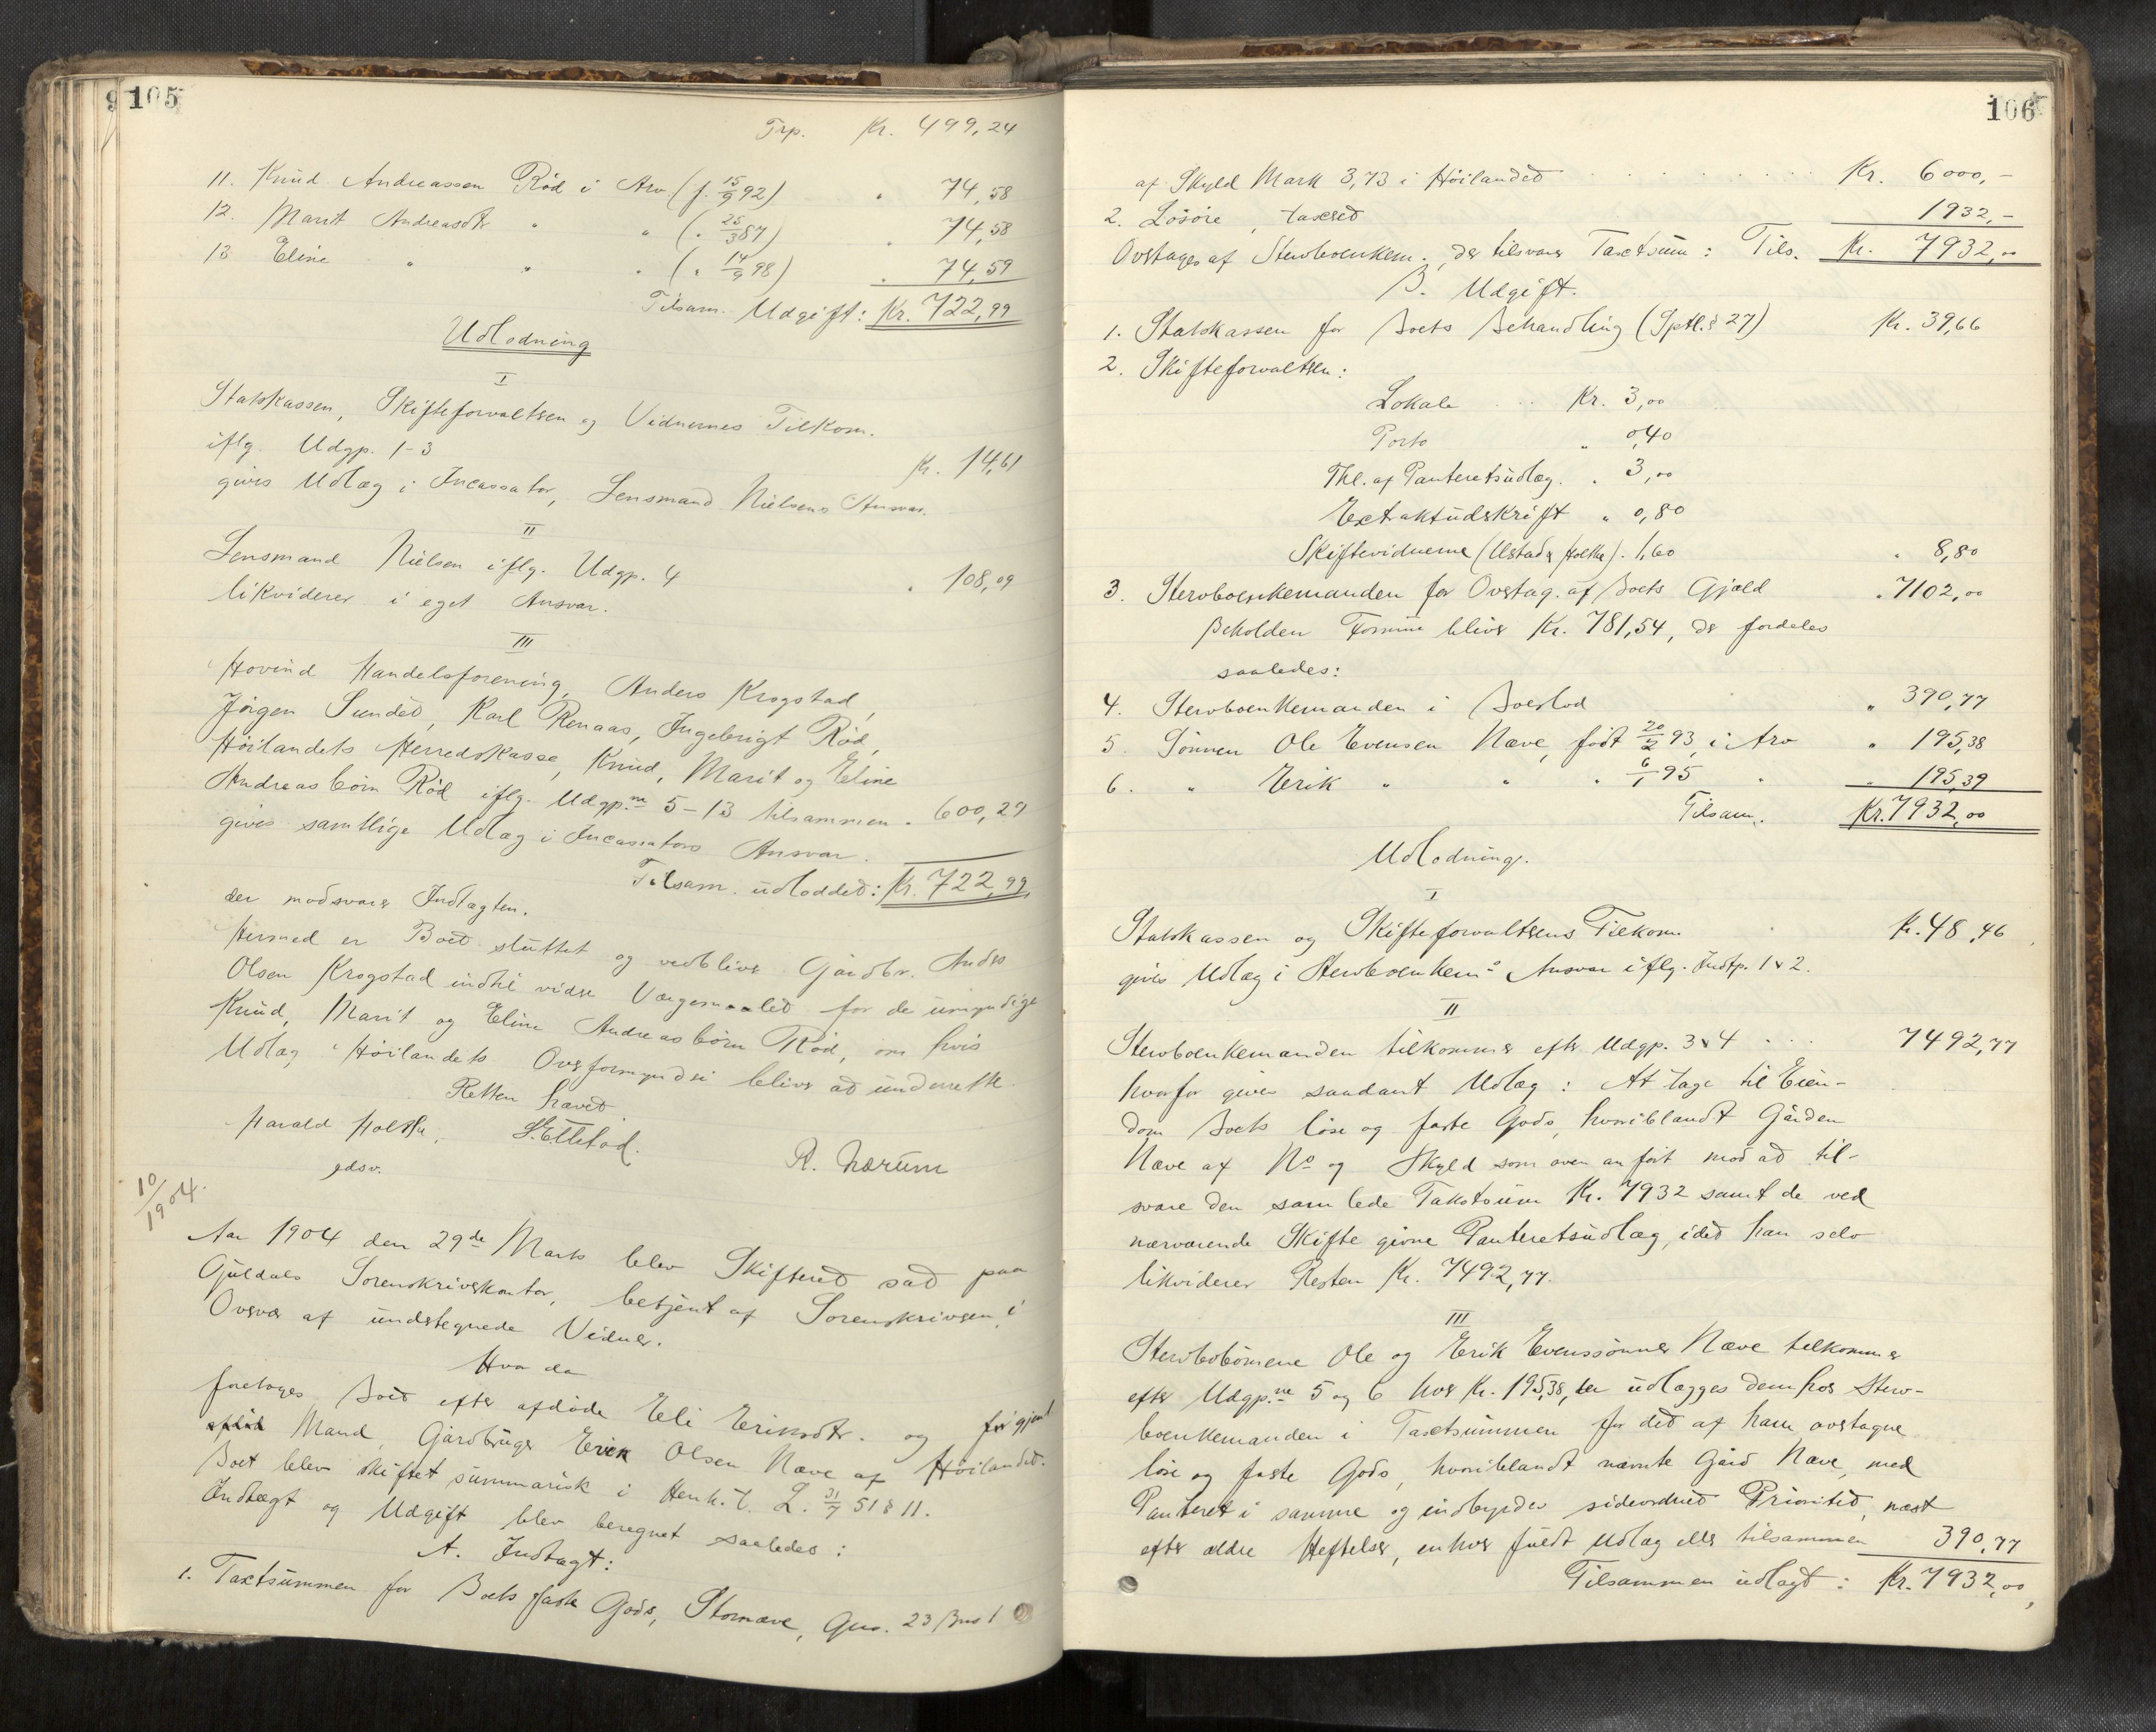 105
Trp. Kr. 499,24
11. Knud Andreassen Röd i Arv (f. 15/9 92) " 74,58
12. Marit Andreasdtr " " ( " 25/3 87) " 74,58
13 Eline " " " ( " 14/9 98) " 74,59
Tilsam. Udgift: Kr. 722,99
Udlodning
I
Statskassen, Skifteforvaltren og Vidnernes Tilkom.
iflg. Udgp. 1-3 Kr. 14,61
gives Udlæg i Incassator, Lensmand Nielsens Ansvar.
II
Lensmand Nielsen iflg. Udgp. 4 " 108,09
likviderer i eget Ansvar.
III
Hovind Handelsforening, Anders Krogstad,
Jörgen Sundet, Karl Renaas, Ingebrigt Röd,
Höilandets Herredskasse, Knud, Marit og Eline
Andreasbörn Röd iflg. Udgp.ne 5-13 tilsammen " 600,29
gives samtlige Udlæg i Incassators Ansvar.
Tilsam. udloddet: Kr. 722,99
der modsvarer Indtægten.
Hermed er Boet sluttet og vedbliver Gårdbr. Anders
Olsen Krogstad indtil videre Værgemaalet for de umyndige
Knud, Marit og Eline Andreasbörn Röd, om hvis
Udlæg Höilandets Overformynderi bliver at underrette.
Retten hævet
Harald Holthe, S. Ellstad. R. Nærum
edsv.
10/1904.
Aar 1904 den 29de Marts blev Skifteret sat paa
Guldals Sorenskriverkontor, betjent af Sorenskriveren, i
Overvær af undertegnede Vidner.
Hvor da
foretoges Boet efter afdöde Eli Eriksdtr. og
Mand, Gårdbruger Even Olsen Næve af Höilandet.
Boet blev skiftet summarisk i Henh. t. L. 31/7 51 § 11.
Indtægt og Udgift blev beregnet saaledes:
A. Indtægt:
1. Taxtsummen for Boets faste Gods, Stornæve, Gno. 23 Bno 1
106
af Skyld Mark 3,73 i Höilandet . . . . . . . . . . Kr. 6000,-
2. Lösöre, taxeret 1932,-
Overtages af Stervboenkem. der tilsvarer Taxtsum: Tils. Kr. 7932,00
B. Udgift.
1. Statskassen for Boets Behandling (Sptl. § 27) Kr. 39,66
2. Skifteforvaltren:
Lokale . . . Kr. 3,00
Porto " 0,40
Thl. af Panteretsudlæg. " 3,00
Extraktudskrift " 0,80
Skiftevidnerne (Ulstad & Holthe) . 1,60 " 8,80
3. Stervboenkemanden for Overtag. af Boets Gjæld " 7102,00
Beholden Formue bliver Kr. 781,54, der fordeles
saaledes:
4. Stervboenkemanden i Boeslod " 390,77
5. Sönnen Ole Evensen Næve, födt 20/2 93, i Arv " 195,38
6. " Erik " " " 6/1 95 " " 195,39
Tilsam. Kr. 7932,00
Udlodning.
I
Statskassen og Skifteforvaltrens Tilkom. Kr. 48,46
gives Udlæg i Stervboenkem.s Ansvar iflg. Indtp. 1 & 2.
II
Stervboenkemanden tilkommer efter Udgp. 3 & 4 . . . 7492,77
hvorfor gives saadant Udlæg: At tage til Eien-
dom Boets löse og faste Gods, hvoriblandt Gården
Næve af No og Skyld som oven anfört mod at til-
svare den samlede Takstsum Kr. 7932 samt de ved
nærværende Skifte givne Panteretsudlæg, idet han selv
likviderer Resten Kr. 7492,77.
III
Stervbobörnene Ole og Erik Evenssönner Næve tilkommer
efter Udgp.ne 5 og 6 hver Kr. 195,38, der udlægges dem hos Sterv-
boenkemanden i Taxtsummen for det af ham overtagne
löse og faste Gods, hvoriblandt nævnte Gård Næve, med
Panteret i samme og indbyrdes sideordnet Prioritet, næst
efter ældre Heftelser, enhver fuldt Udlæg eller tilsammen 390,77
Tilsammen udlagt: Kr. 7932,00,